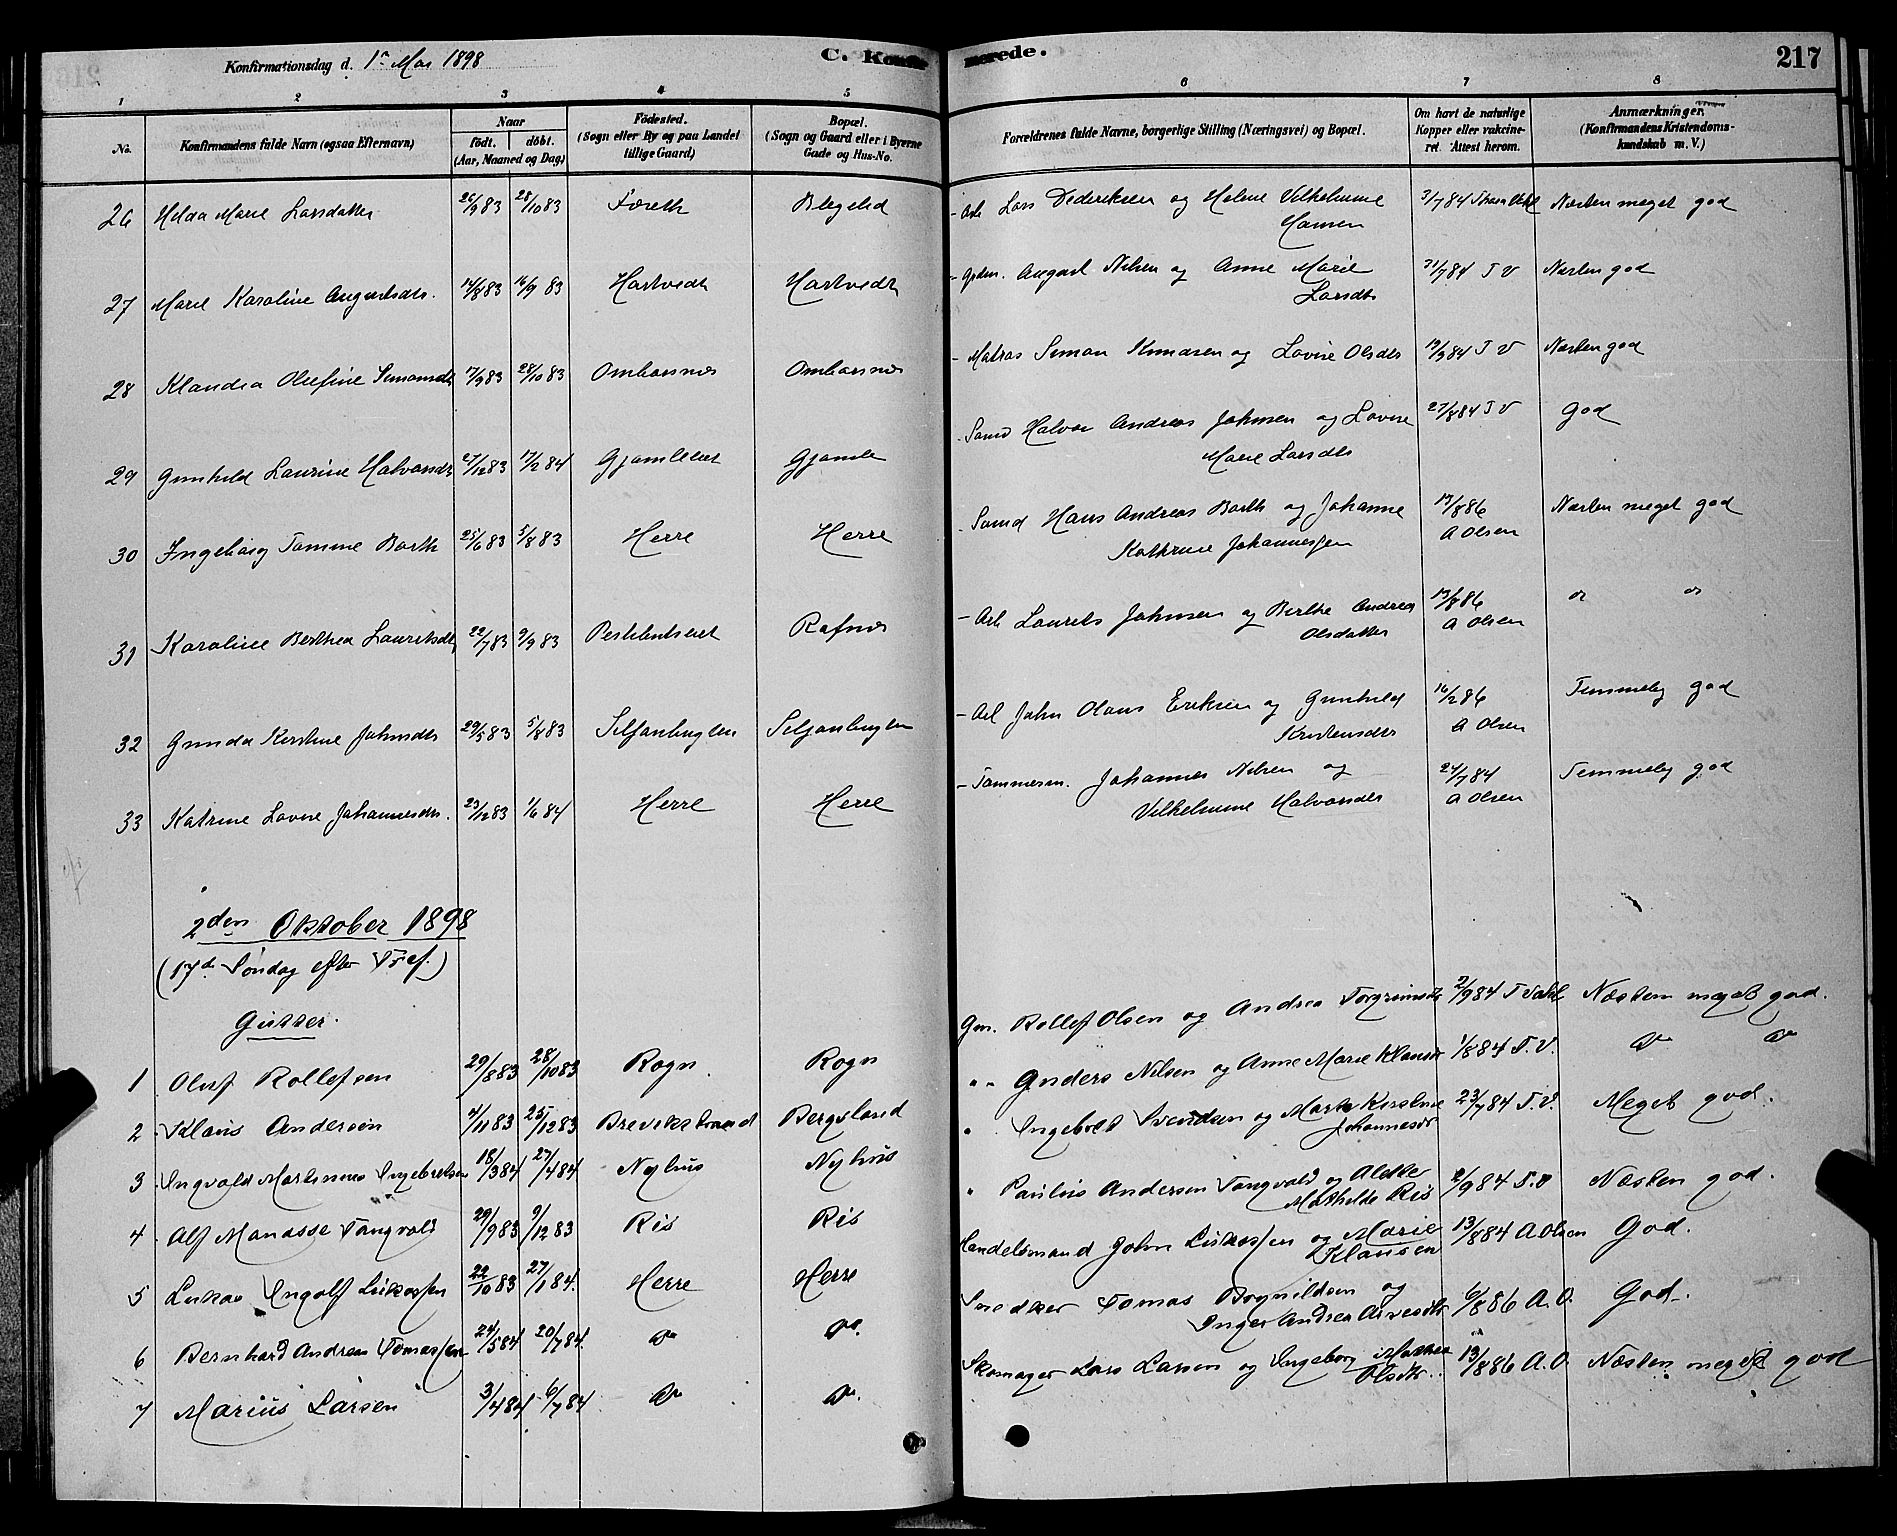 Konfirmationsdag d. 1ste Mai 1898
C. Konfirmerede.
217
1 2 3 4 5 6 7 8
No. Konfirmandens fulde Navn (ogsaa Efternavn) Naar født. døbt. (Aar, Maaned og Dag) Fødested. (Sogn eller By og paa Landet tillige Gaard) Bopæl. (Sogn og Gaard eller i Byerne Gade og Hus-No. Forældrenes fulde Navne, borgerlige Stilling (Næringsvei) og Bopæl. Om havt de naturlige Kopper eller vakcineret. Attest herom. Anmærkninger. (Konfirmandens Kristendomskundskab m. V.)
26 Hilda Marie Larsdatter 26/9 83 28/10 83 Foreth - Arb Lars Dideriksen og Helene Vilhelmine Hansen 3/7 84 Næsten meget god
27 Marie Karoline Augustsdtr. 14/8 83 16/9 83 Hartvedt Hartvedt - August Nilsen og Anne Marie Larsdtr 31/7 84 T V Næsten god
28 Klaudia Olufine Simonsdtr 7/9 83 28/10 83 Ombornes Ombornes - Matros Simon Knudsen og Lovise Olsdtr 19/9 84 T V Næsten god
29 Gunhild Laurine Halvorsdtr 27/12 83 17/2 84 Gjømle Halvor Andreas Johnsen og Lovise Marie Larsdtr 27/8 84 T V God
30 Ingeborg Tomine Barth 25/6 83 5/8 83 Herre Herre Hans Andreas Barth og Johanne Kathrine Johannessen 19/8 86 A Olsen Næsten meget god
31 Karoline Berthea Lauritsdtr 22/7 83 9/9 83 Rafnes - Arb Laurits Johnsen og Berthe Andrea Olsdatter 19/8 86 A Olsen do do
32 Gunda Kirstine Johnsdtr 29/5 83 5/8 83 Siljanbugten Siljanbugten - Arb John Olaus Eriksen og Gunhild Kristensdtr 16/2 86 A Olsen Temmelig god
33 Katrine Lovise Johannesdtr. 23/12 83 1/6 84 Herre Herre - Tømmerm. Johannes Nilsen og Vilhelmine Halvorsdtr 24/7 84 A Olsen Temmelig god
2den Oktober 1898
(17de Søndag efter Tref.)
Gutter.
1 Oluf Rollefsen 29/8 83 28/10 83 Rogn Rogn Gm. Rollef Olsen og Andrea Torgrimsdtr 2/9 84 Næsten meget god.
2 Klaus Andersen 4/11 83 25/12 83 Brevikstrand Bergsland " " Anders Nilsen og Anne Marie Klausdtr 1/8 84 T. V. do do
3 Ingvald Martinius Ingebretsen 18/3 84 27/4 84 Nyhus Nyhus " Ingebret Svendsen og Marte Kirstine Johannesdtr 23/7 84 T. V. Meget god.
4 Alf Manasse Tangvald 29/9 83 9/12 83 Ris Ris " Paulus Andersen Tangvald og Alette Mathilde Ris 2/9 84 T. V Næsten god.
5 Lukas Ingolf Lukassen 22/10 83 27/1 84. Herre Herre Handelsmand John Lukassen og Marie Klausen 13/8 84 A Olsen God.
6 Bernhard Andreas Tomassen 24/5 84 20/7 84. do do. Snedker Tomas Bognildsen og Inger Andrea 6/8 86 A. O. God.
7 Marius Larsen 3/4 84 6/7 84 do do. Skomager Lars Larsen og Ingeborg Mathea Olsdtr. 13/8 86 A. O Næsten meget god